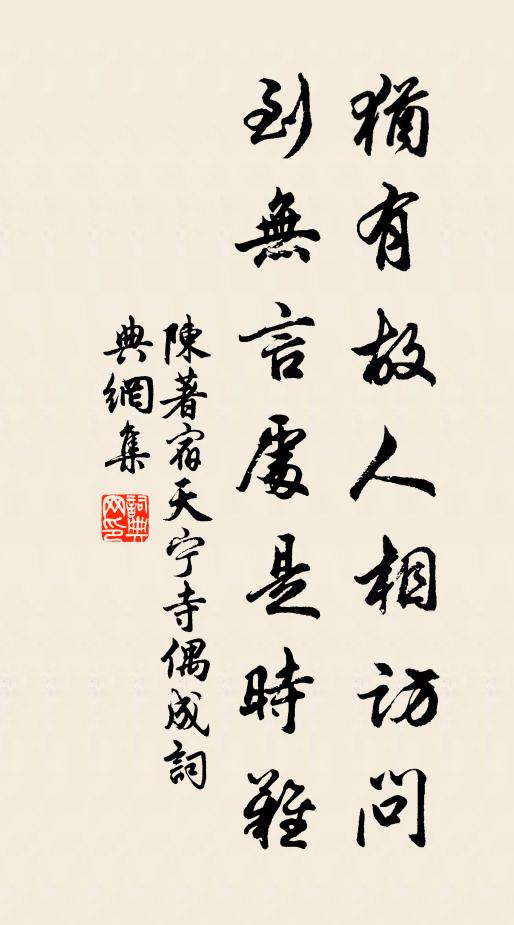 猶有故人相訪問
到無言處是時難
陳著宿天宁寺偶成詞
典網集
詞典
网印